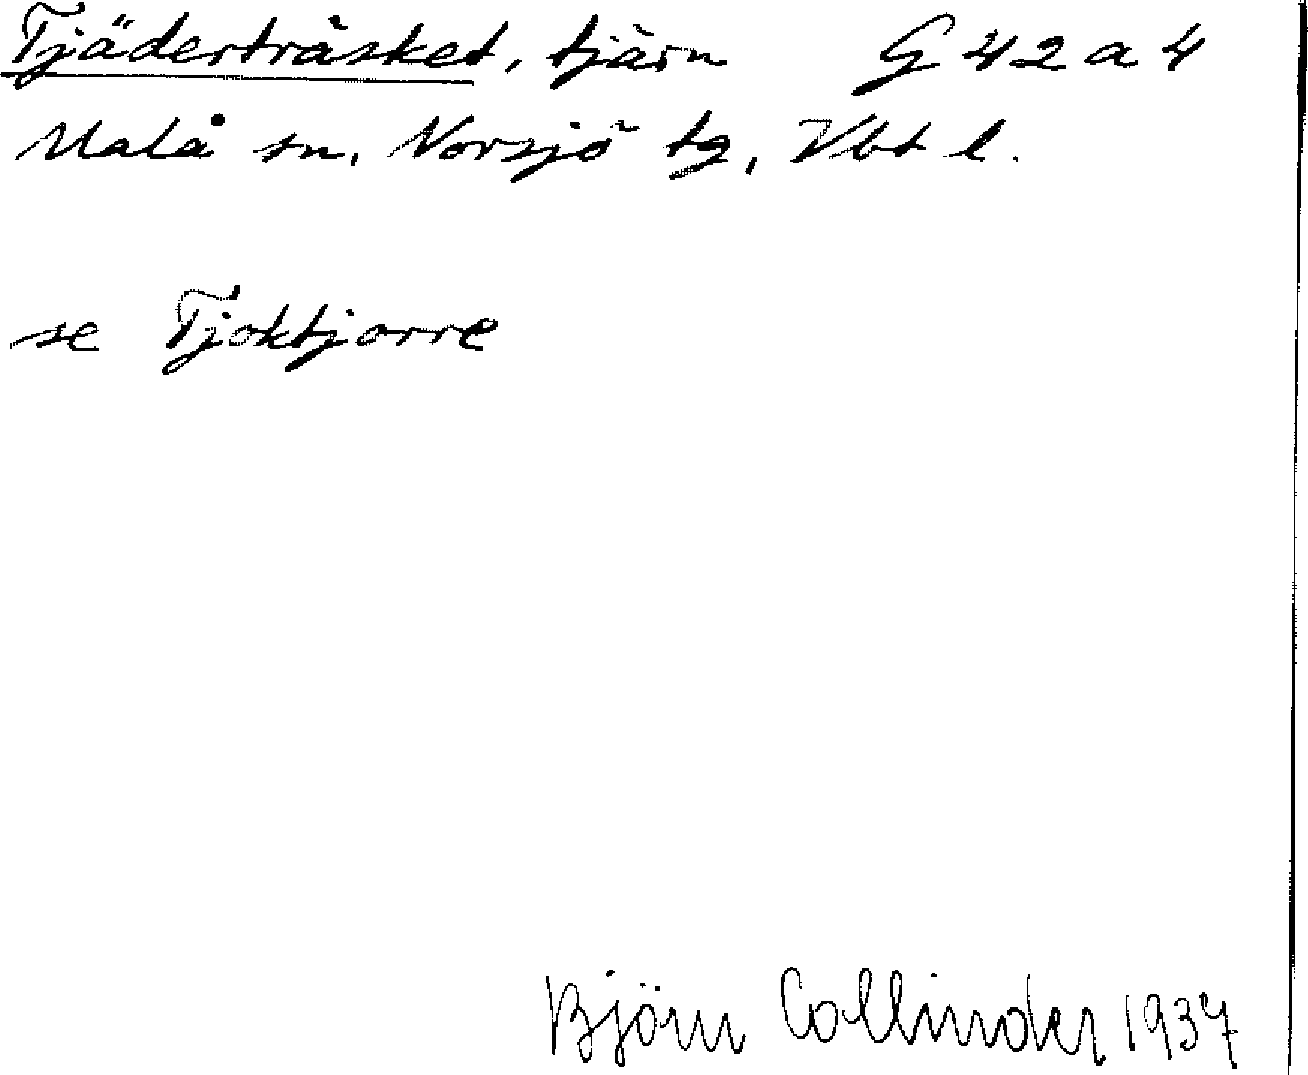 Tjäderträsket, tjärn G 42 a 4
Malå sn, Norsjö tg, Vbt l.
se Tjoktjorre
Björn Collinder 1937